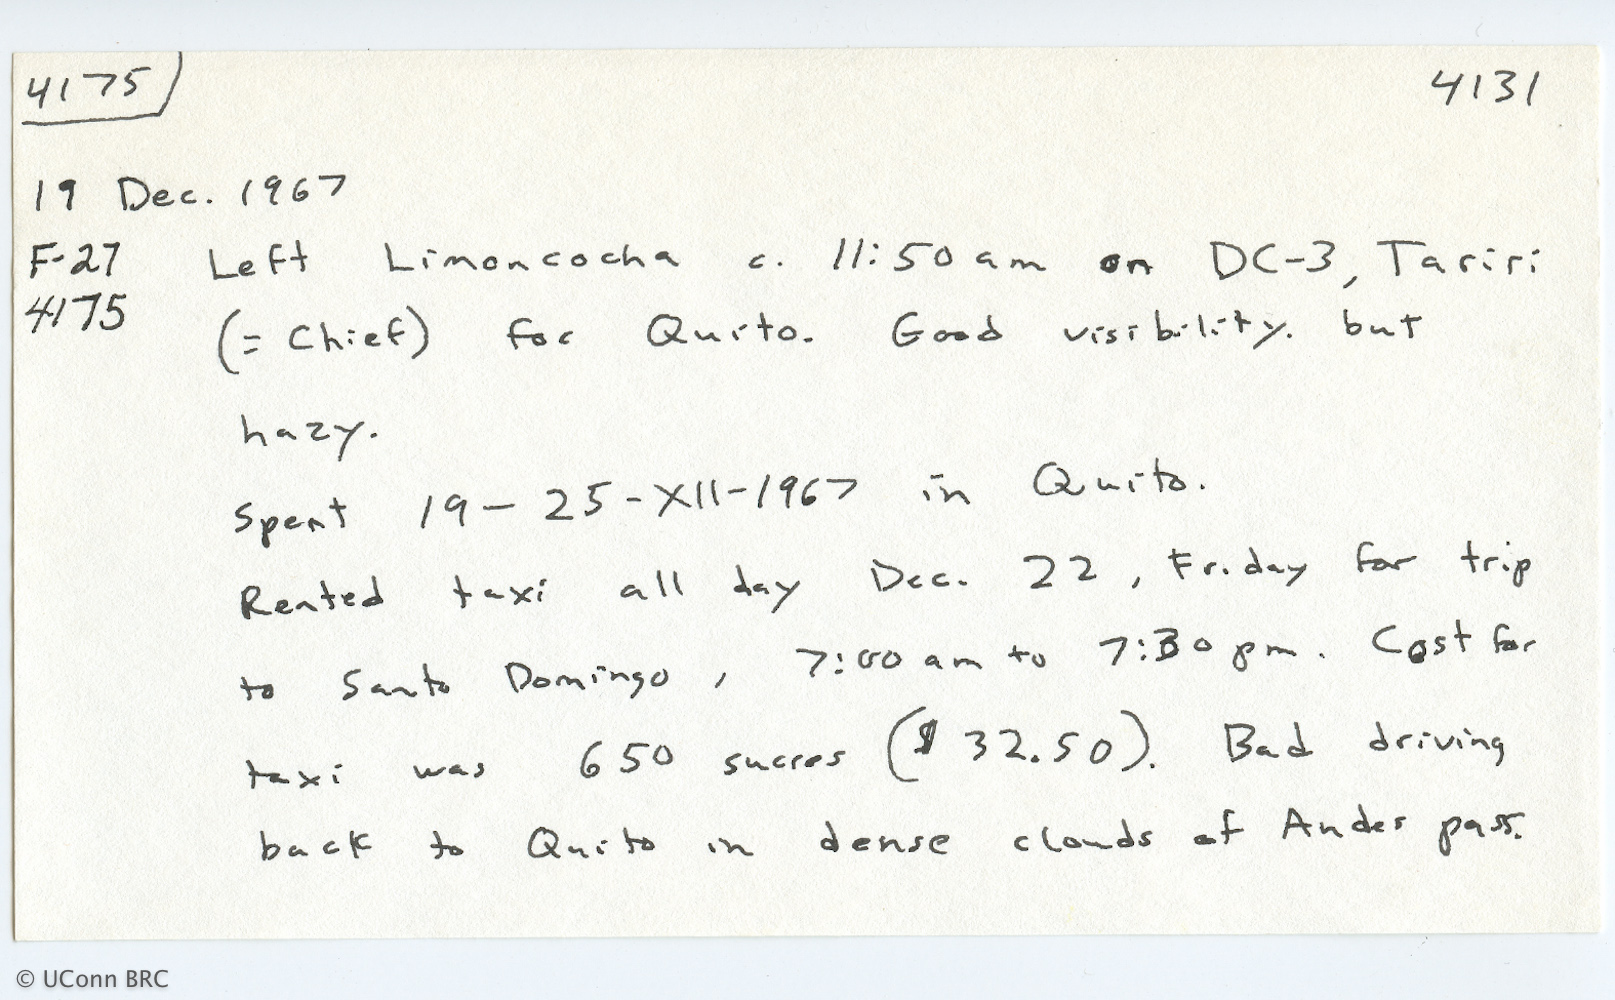 4175 4131
19 Dec. 1967
F-27 Left Limoncocha c. 11:50 am on DC-3, Tariri
4175 (= Chief) for Quito. Good visibility. but
hazy.
Spent 19 - 25-XII-1967 in Quito.
Rented taxi all day Dec. 22, Friday for trip
to Santo Domingo, 7:00 am to 7:30 pm. Cost for
taxi was 650 sucres ($32.50). Bad driving
back to Quito in dense clouds of Andes pass.
© UConn BRC